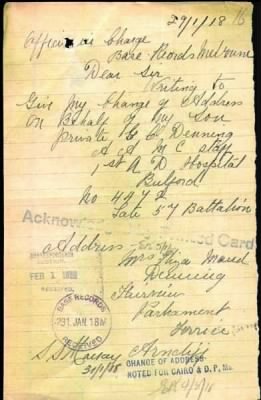 29/1/18
Officer in Charge
Base Records Melbourne
Dear Sir
Writing to
Give My Change of Address
On Behalf of My Son
Private C C Denning
A A M C Staff
1st A D Hospital
Bulford
No 4472
Late 57 Battalion
Acknow Card
Address
Mrs Eliza Maud
Denning
Fairview
Parliament
FEB 1 1918
BASE RECORDS
31 JAN 18
RECEIVED
CHANGE OF ADDRESS
NOTED FOR CAIRO & D. P. M.